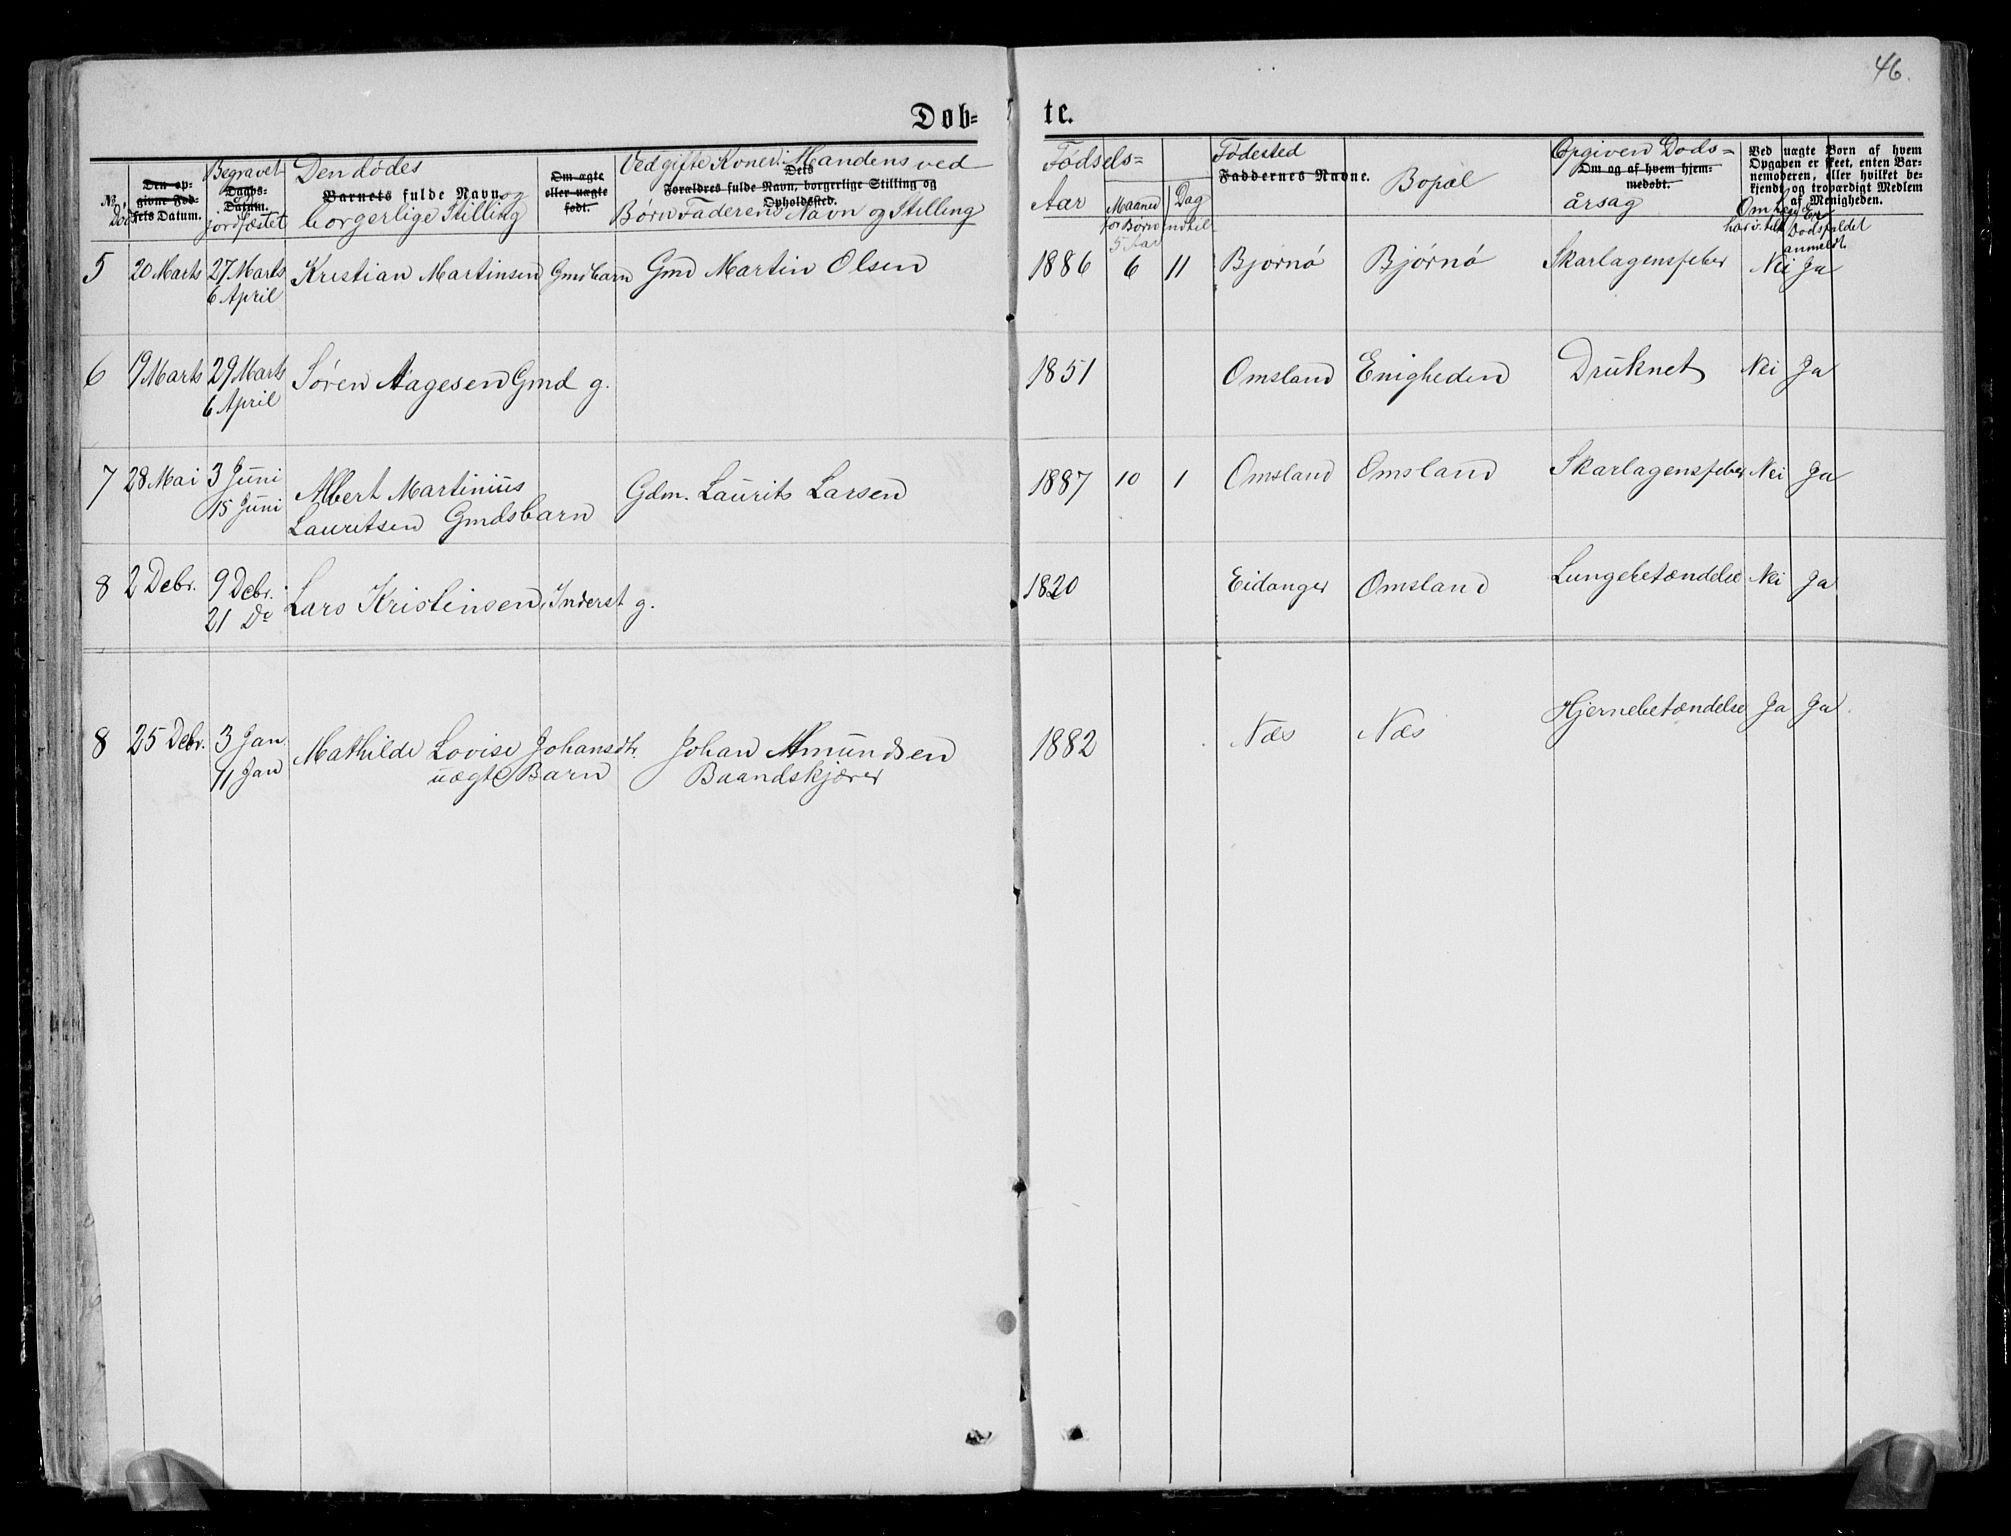 46.
Døb= te.
№ Død
Den op-
givne Fød-
sels Datum.
Begravet
Daabs-
Datum.
og
jordfæstet
Den dødes
Barnets fulde Navn og
borgerlige Stilling
Om ægte
eller uægte
født.
Ved gifte Koner: Mandens ved
Dets
Forældres fulde Navn, borgerlige Stilling og
Opholdssted.
Børn Faderens Navn og Stilling
Fødsels=
Aar
Maaned Dag
for Børn indtil
5 Aar
Fødested
Faddernes Navne.
Bopæl
Opgiven Døds=
Om og af hvem hjem-
medøbt.
årsag
Ved uægte Børn af hvem
Opgaven er skeet, enten Bar-
nemoderen, eller hvilket be-
kjendt og troværdigt Medlem
af Menigheden.
Er
Dødsfaldet
anmeldt.
5 20 Marts 27 Marts Kristian Martinsen Gmdbarn Gmd Martin Olsen 1886 6 11 Bjørnø Bjørnø Skarlagensfeber Nei Ja
6 April
6 19 Marts 29 Marts Søren Aagesen Gmd g. 1851 Omsland Enigheden Druknet Nei Ja
6 April
7 28 Mai 3 Juni Albert Martinius Gdm. Laurits Larsen 1887 10 1 Omsland Omsland Skarlagensfeber Nei Ja
15 Juni Lauritsen Gmdsbarn
8 2 Debr. 9 Debr. Lars Kristensen, Inderst g. 1820 Eidanger Omsland Lungebetændelse Nei Ja
21 De
8 25 Debr. 3 Jan Mathilde Lovise Johansdtr. Johan Amundsen 1882 Næs Næs Hjernebetændelse Ja Ja
11 Jan uægte Barn Baandskjærer